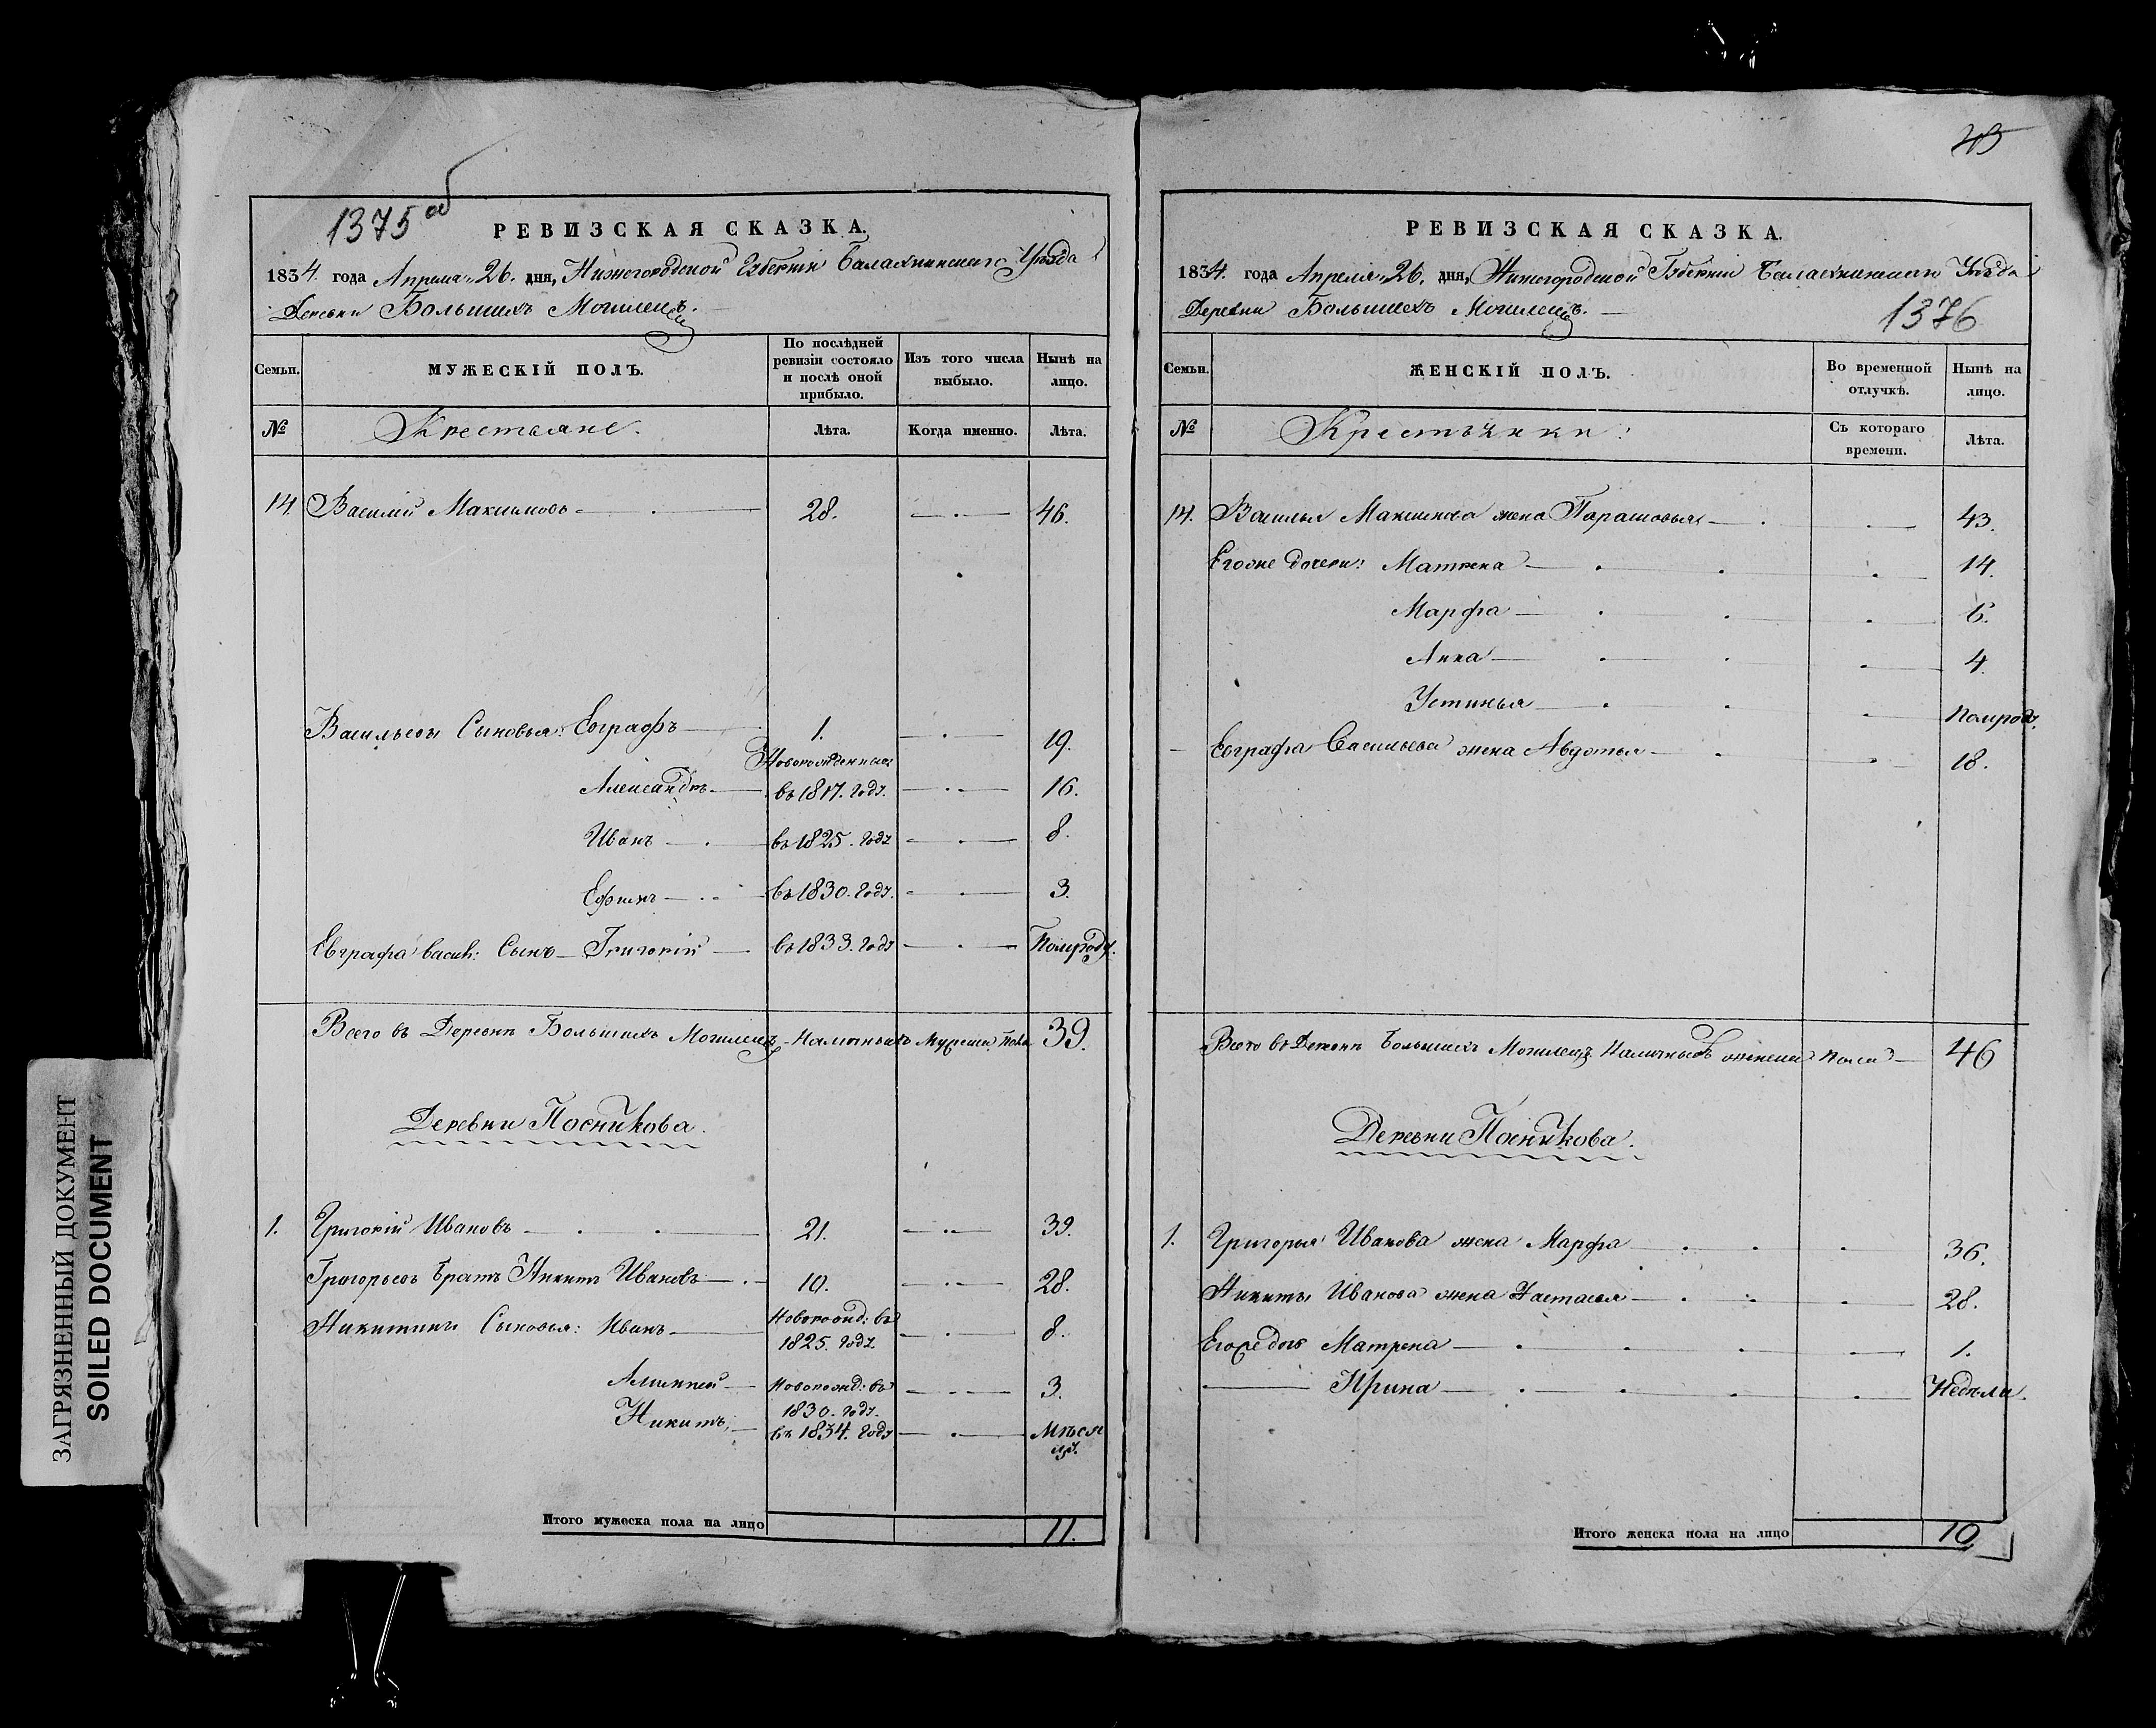 43
1375 об
РЕВИЗСКАЯ СКАЗКА.
1834. года Апреля 26. дня, Нижегородской Губернїи Балахнинскаго Уѣзда
Деревни Большихъ Могилецъ.
Семьи. МУЖЕСКІЙ ПОЛЪ. По послѣдней ревизіи состояло и послѣ оной прибыло. Изъ того числа выбыло. Нынѣ на лицо.
№ Крестьяне. Лѣта. Когда именно. Лѣта.
14. Василий Максимовъ 28. 46.
Васильевы Сыновья: Евграфъ 1. 19.
Новорожденные
Александръ в 1817. году. 16.
Иванъ въ 1825. году 8.
Ефимъ въ 1830. году. 3.
Евграфа васил: Сынъ Григорій въ 1833. году Полугоду.
Всего въ Деревнѣ Большихъ Могилецъ Наличныхъ Мужеска Пола 39.
Деревни Посникова.
1. Григорій Ивановъ 21. 39.
Григорьевъ братъ Никита Ивановъ 10. 28.
Никитины Сыновья: Иванъ Новорожд: въ 1825. году 8.
Алексей Новорожд: въ 1830. году. 3.
Никита въ 1834. году Мѣсяцъ.
Итого мужеска пола на лицо 11.
РЕВИЗСКАЯ СКАЗКА.
1834. года Апреля 26. дня, Нижегородской Губерніи Балахнинскаго Уѣзда
Деревни Большихъ Могилецъ.
1376
Семьи. ЖЕНСКІЙ ПОЛЪ. Во временной отлучкѣ. Нынѣ на лицо.
№ Крестьянки: Съ котораго времени. Лѣта.
14. Василья Максимова жена Парасковья 43.
Егоже дочери: Матрена 14.
Марфа 6.
Анна 4.
Устинья Полугоду.
Евграфа Васильева жена Авдотья 18.
Всего въ Деревнѣ Большихъ Могилецъ Наличныхъ женска пола 46
Деревни Посникова.
1. Григорья Иванова жена Марфа 36.
Никиты Иванова жена Настасья 28.
Матрена 1.
Ирина Недѣли.
Итого женска пола на лицо 10
ЗАГРЯЗНЕННЫЙ ДОКУМЕНТ
SOILED DOCUMENT